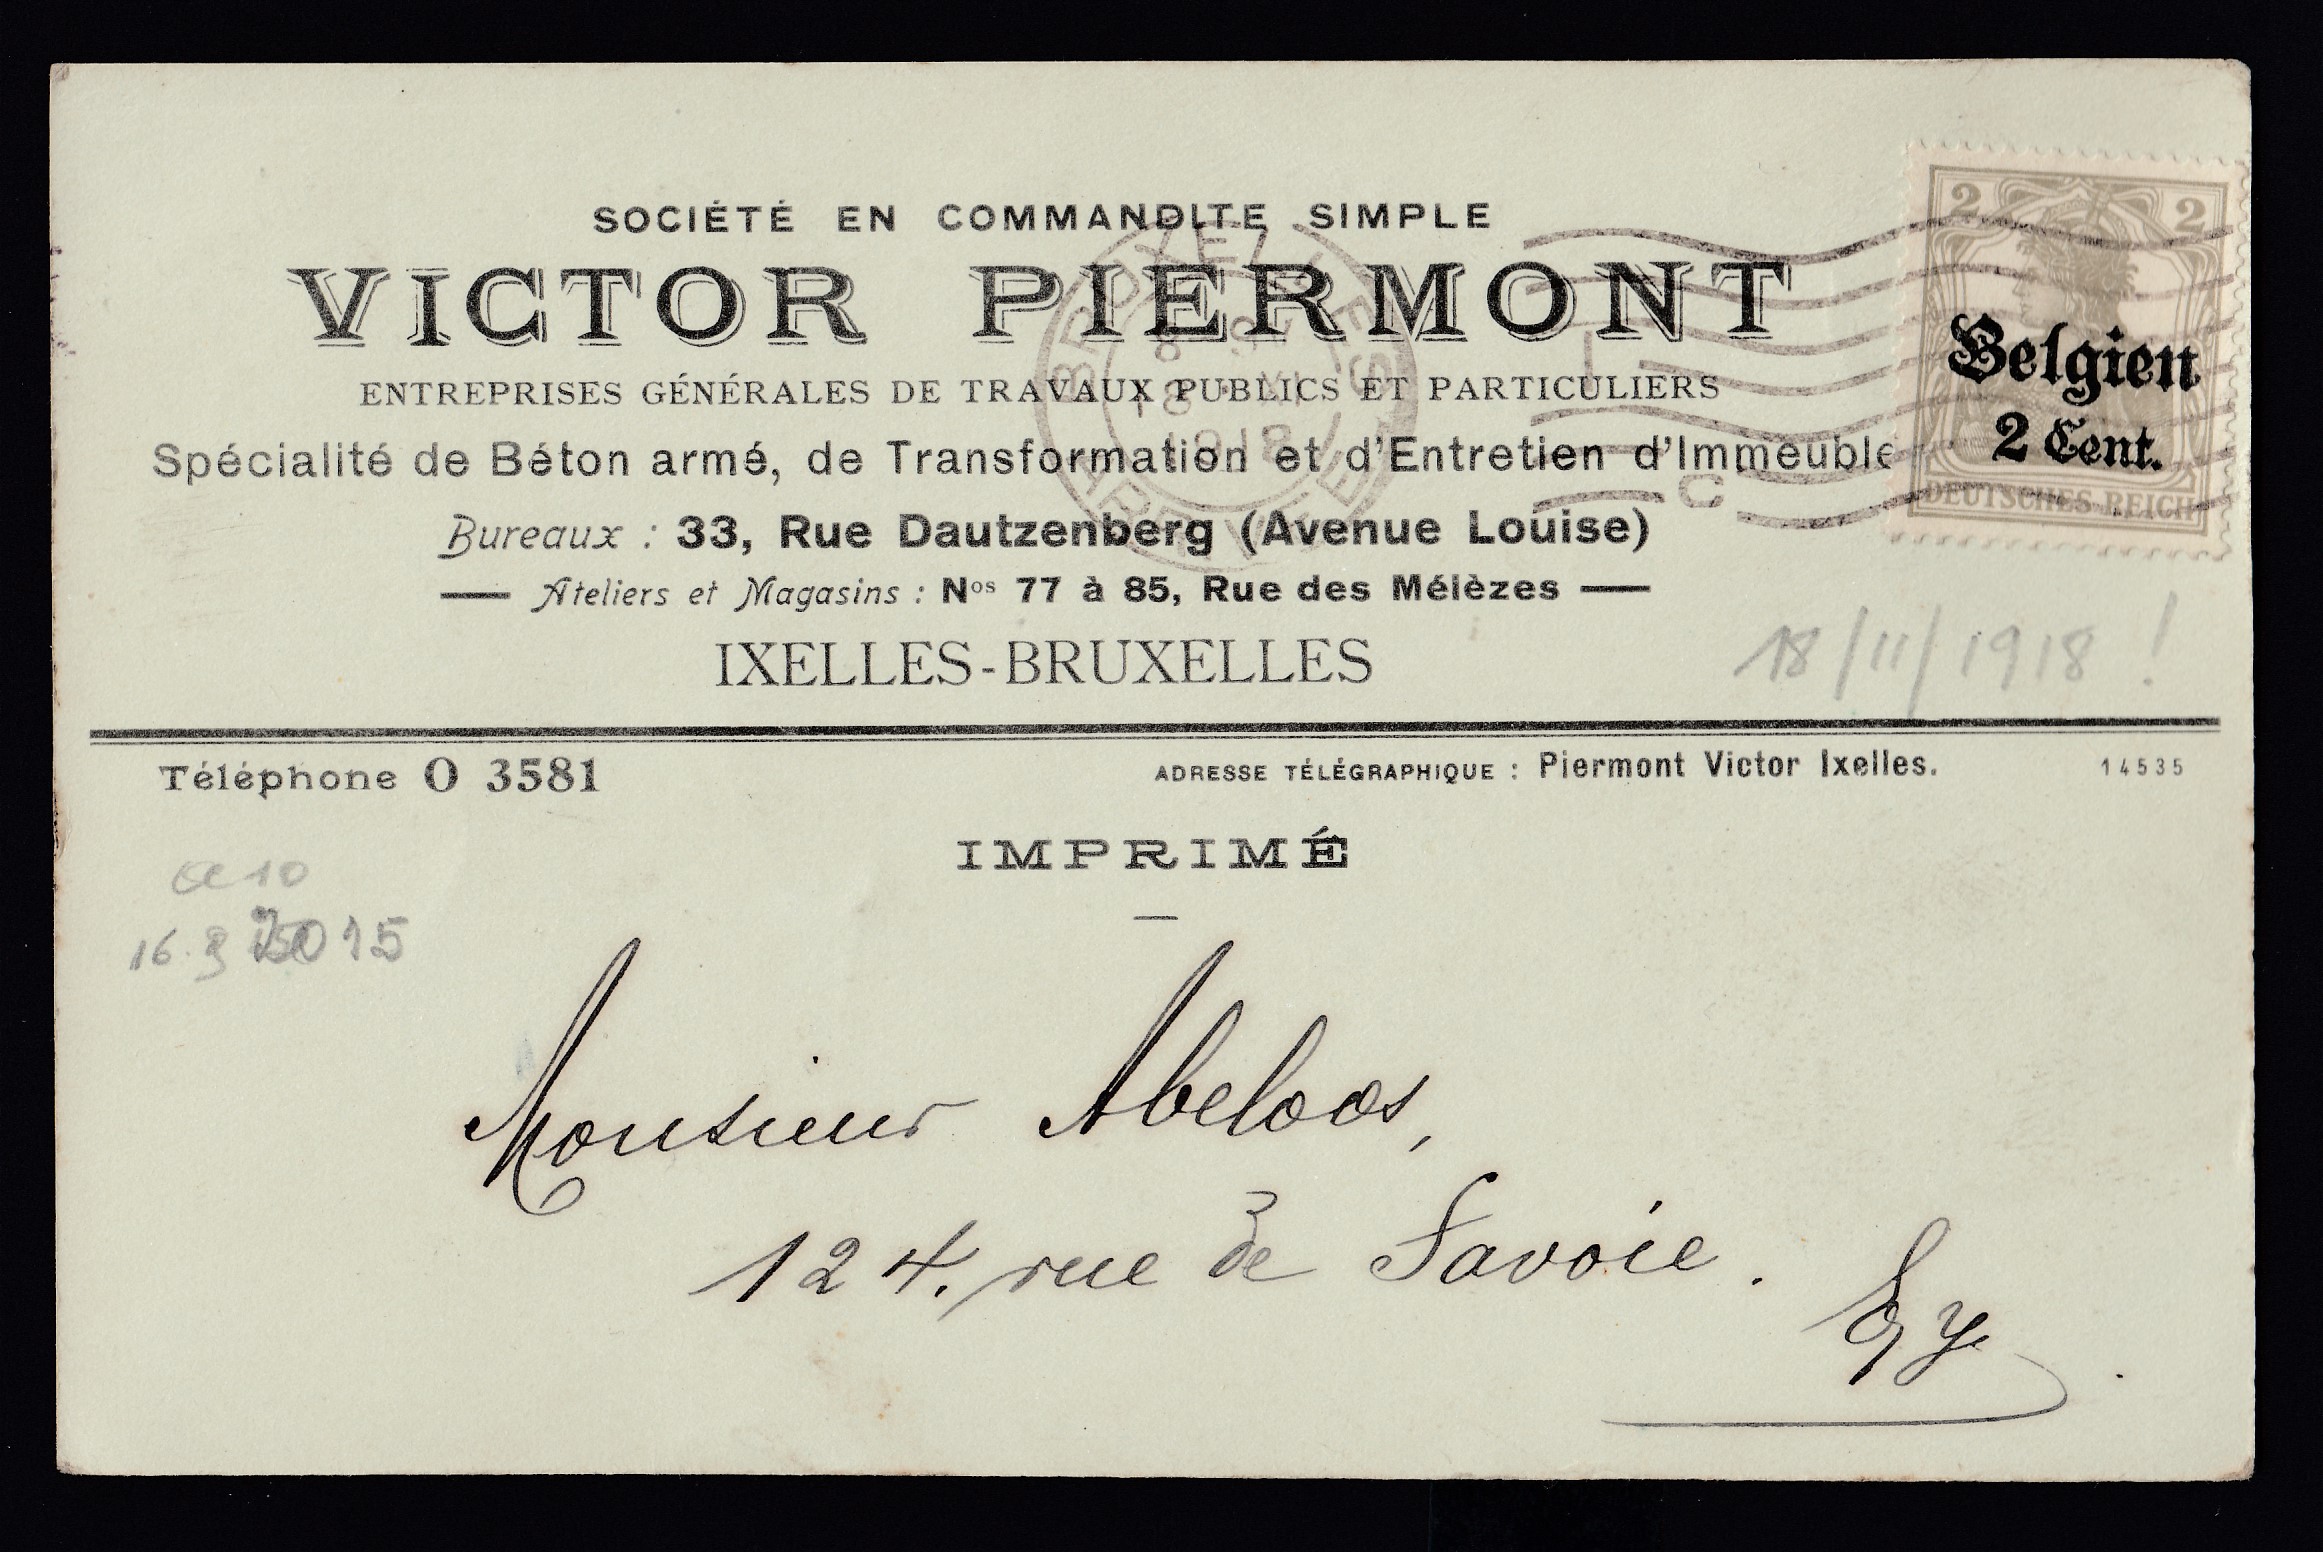 SOCIÉTÉ EN COMMANDITE SIMPLE
VICTOR PIERMONT
ENTREPRISES GÉNÉRALES DE TRAVAUX PUBLICS ET PARTICULIERS
Spécialité de Béton armé, de Transformation et d'Entretien d'Immeuble
Bureaux : 33, Rue Dautzenberg (Avenue Louise)
— Ateliers et Magasins : Nos 77 à 85, Rue des Mélèzes —
IXELLES-BRUXELLES
2 2
Belgien
2 Cent.
DEUTSCHES REICH
BRUXELLES
1918
BRUSSEL
18/11/1918!
Téléphone O 3581
ADRESSE TÉLÉGRAPHIQUE : Piermont Victor Ixelles.
14535
IMPRIMÉ
Monsieur Abeloos,
124, rue de Savoie.